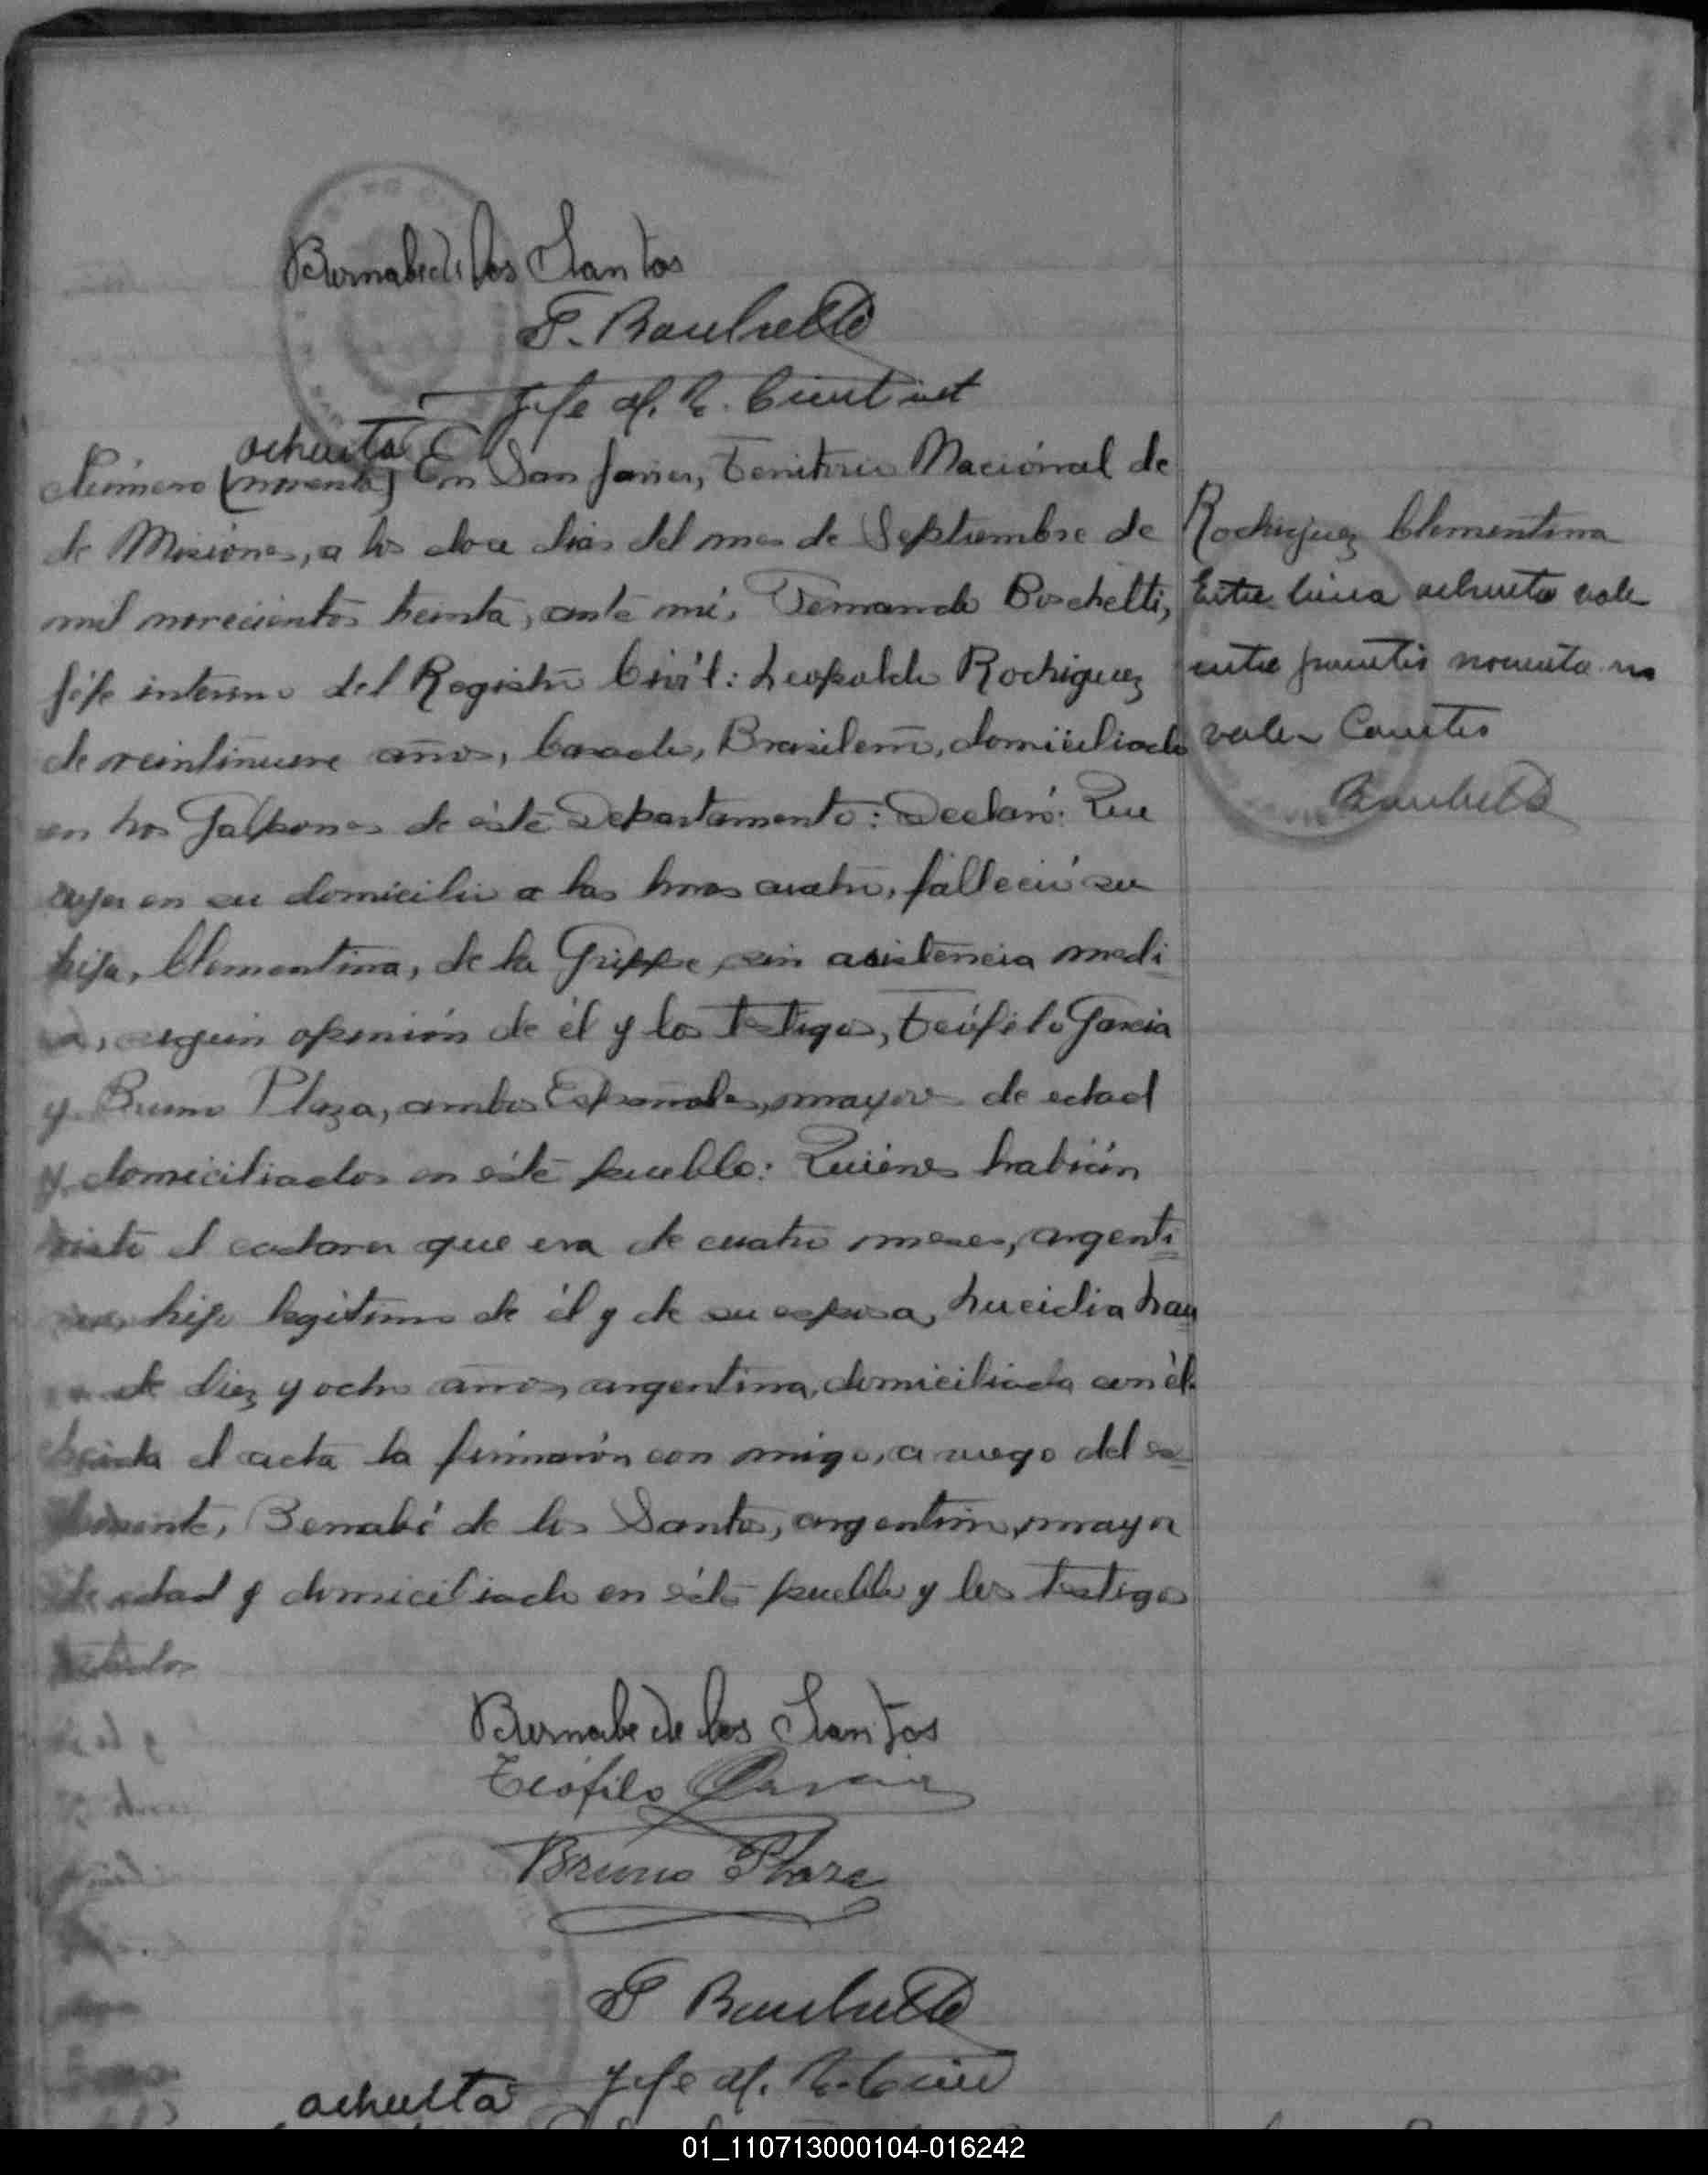 Bernabé de los Santos
F. Boschetti
Jefe del R. Civil int
ochenta
Número (noventa) En San Javier, Territorio Nacional de
de Misiones, a los doce dias del mes de Septiembre de
mil novecientos treinta, ante mí, Fernando Boschetti,
Jéfe interino del Registro Civil: Leopoldo Rodriguez
de veintinueve años, Casado, Brasileño, domiciliado
en Los Galpones de éste Departamento: Declaró: Que
ayer en su domicilio a las horas cuatro, falleció su
hija, Clementina, de la Grippe, sin asistencia medi
según opinión de él y los testigos, Teófilo Garcia
y Bruno Plaza, ambos Españoles, mayores de edad
y domiciliados en éste pueblo: Quiénes habián
visto el cadaver que era de cuatro meses, argenti
hija legítima de él y de su esposa, Lucidia
de diez y ocho años, argentina, domiciliada con él.
el acta la firmarón con migo, a ruego del
Bernabé de los Santos, argentino, mayor
de edad y domiciliado en éste pueblo y los testigos
Rodriguez Clementina
Entre linea ochenta vale
entre parentis noventa no
vale
Boschetti
Bernabe de los Santos
Teófilo Garcia
Bruno Plaza
F Boschetti
Jefe del R. Civil
ochenta
01_110713000104-016242